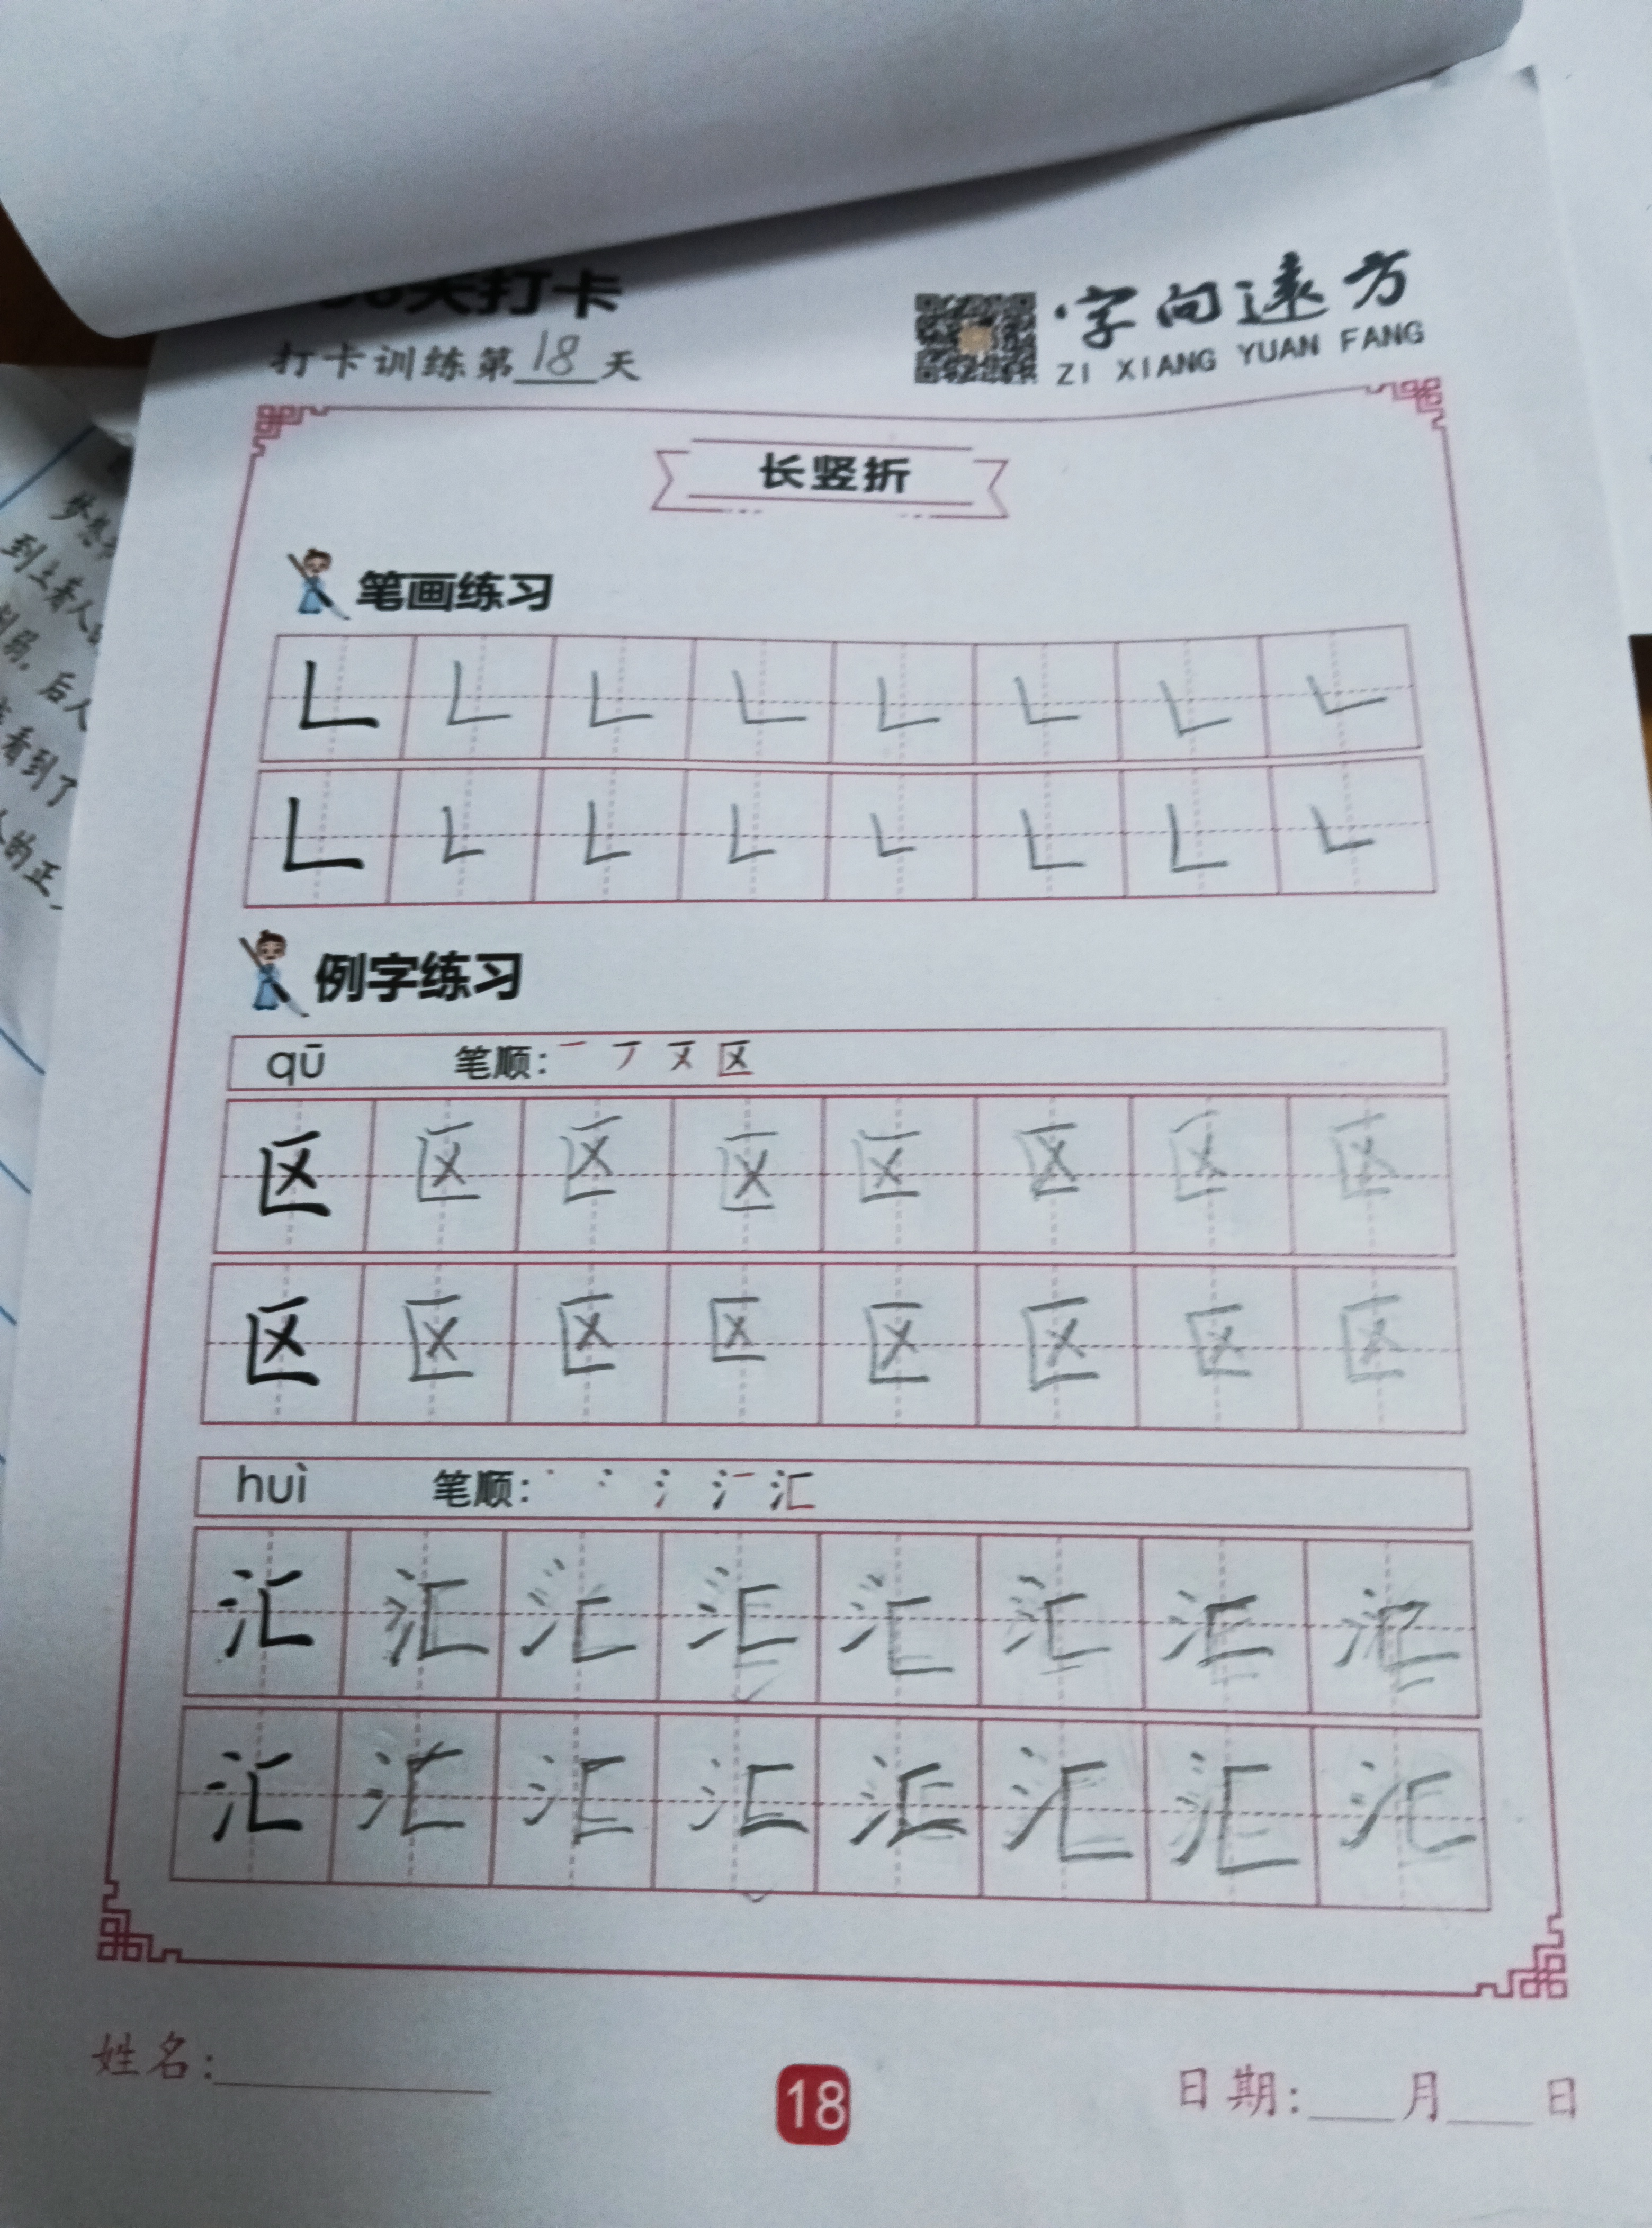 天打卡
打卡训练第18天
字向远方
ZI XIANG YUAN FANG
长竖折
笔画练习
𠃊 𠃊 𠃊 𠃊 𠃊 𠃊 𠃊 𠃊
𠃊 𠃊 𠃊 𠃊 𠃊 𠃊 𠃊 𠃊
例字练习
qū 笔顺: 区
区 区 区 区 区 区 区 区
区 区 区 区 区 区 区 区
huì 笔顺: 汇
汇 汇 汇 汇 汇 汇 汇 汇
汇 汇 汇 汇 汇 汇 汇 汇
姓名:
18
日期: 月 日
到上看人
后人
看到了
的正